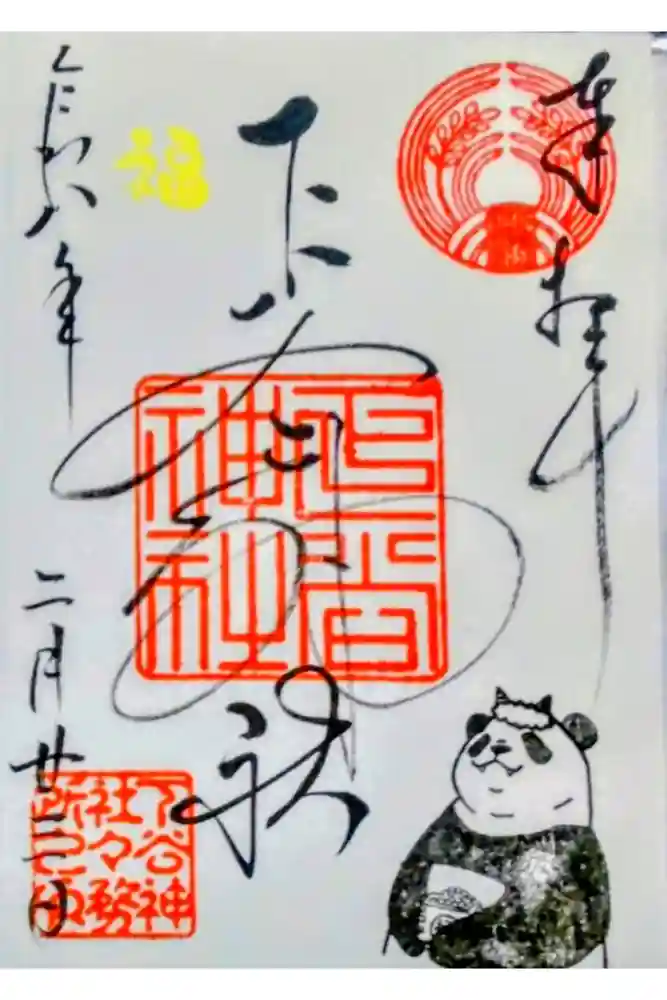 奉拝
下谷神社
令和八年
二月廿三日
福
下谷神社
下谷神社々務所之印